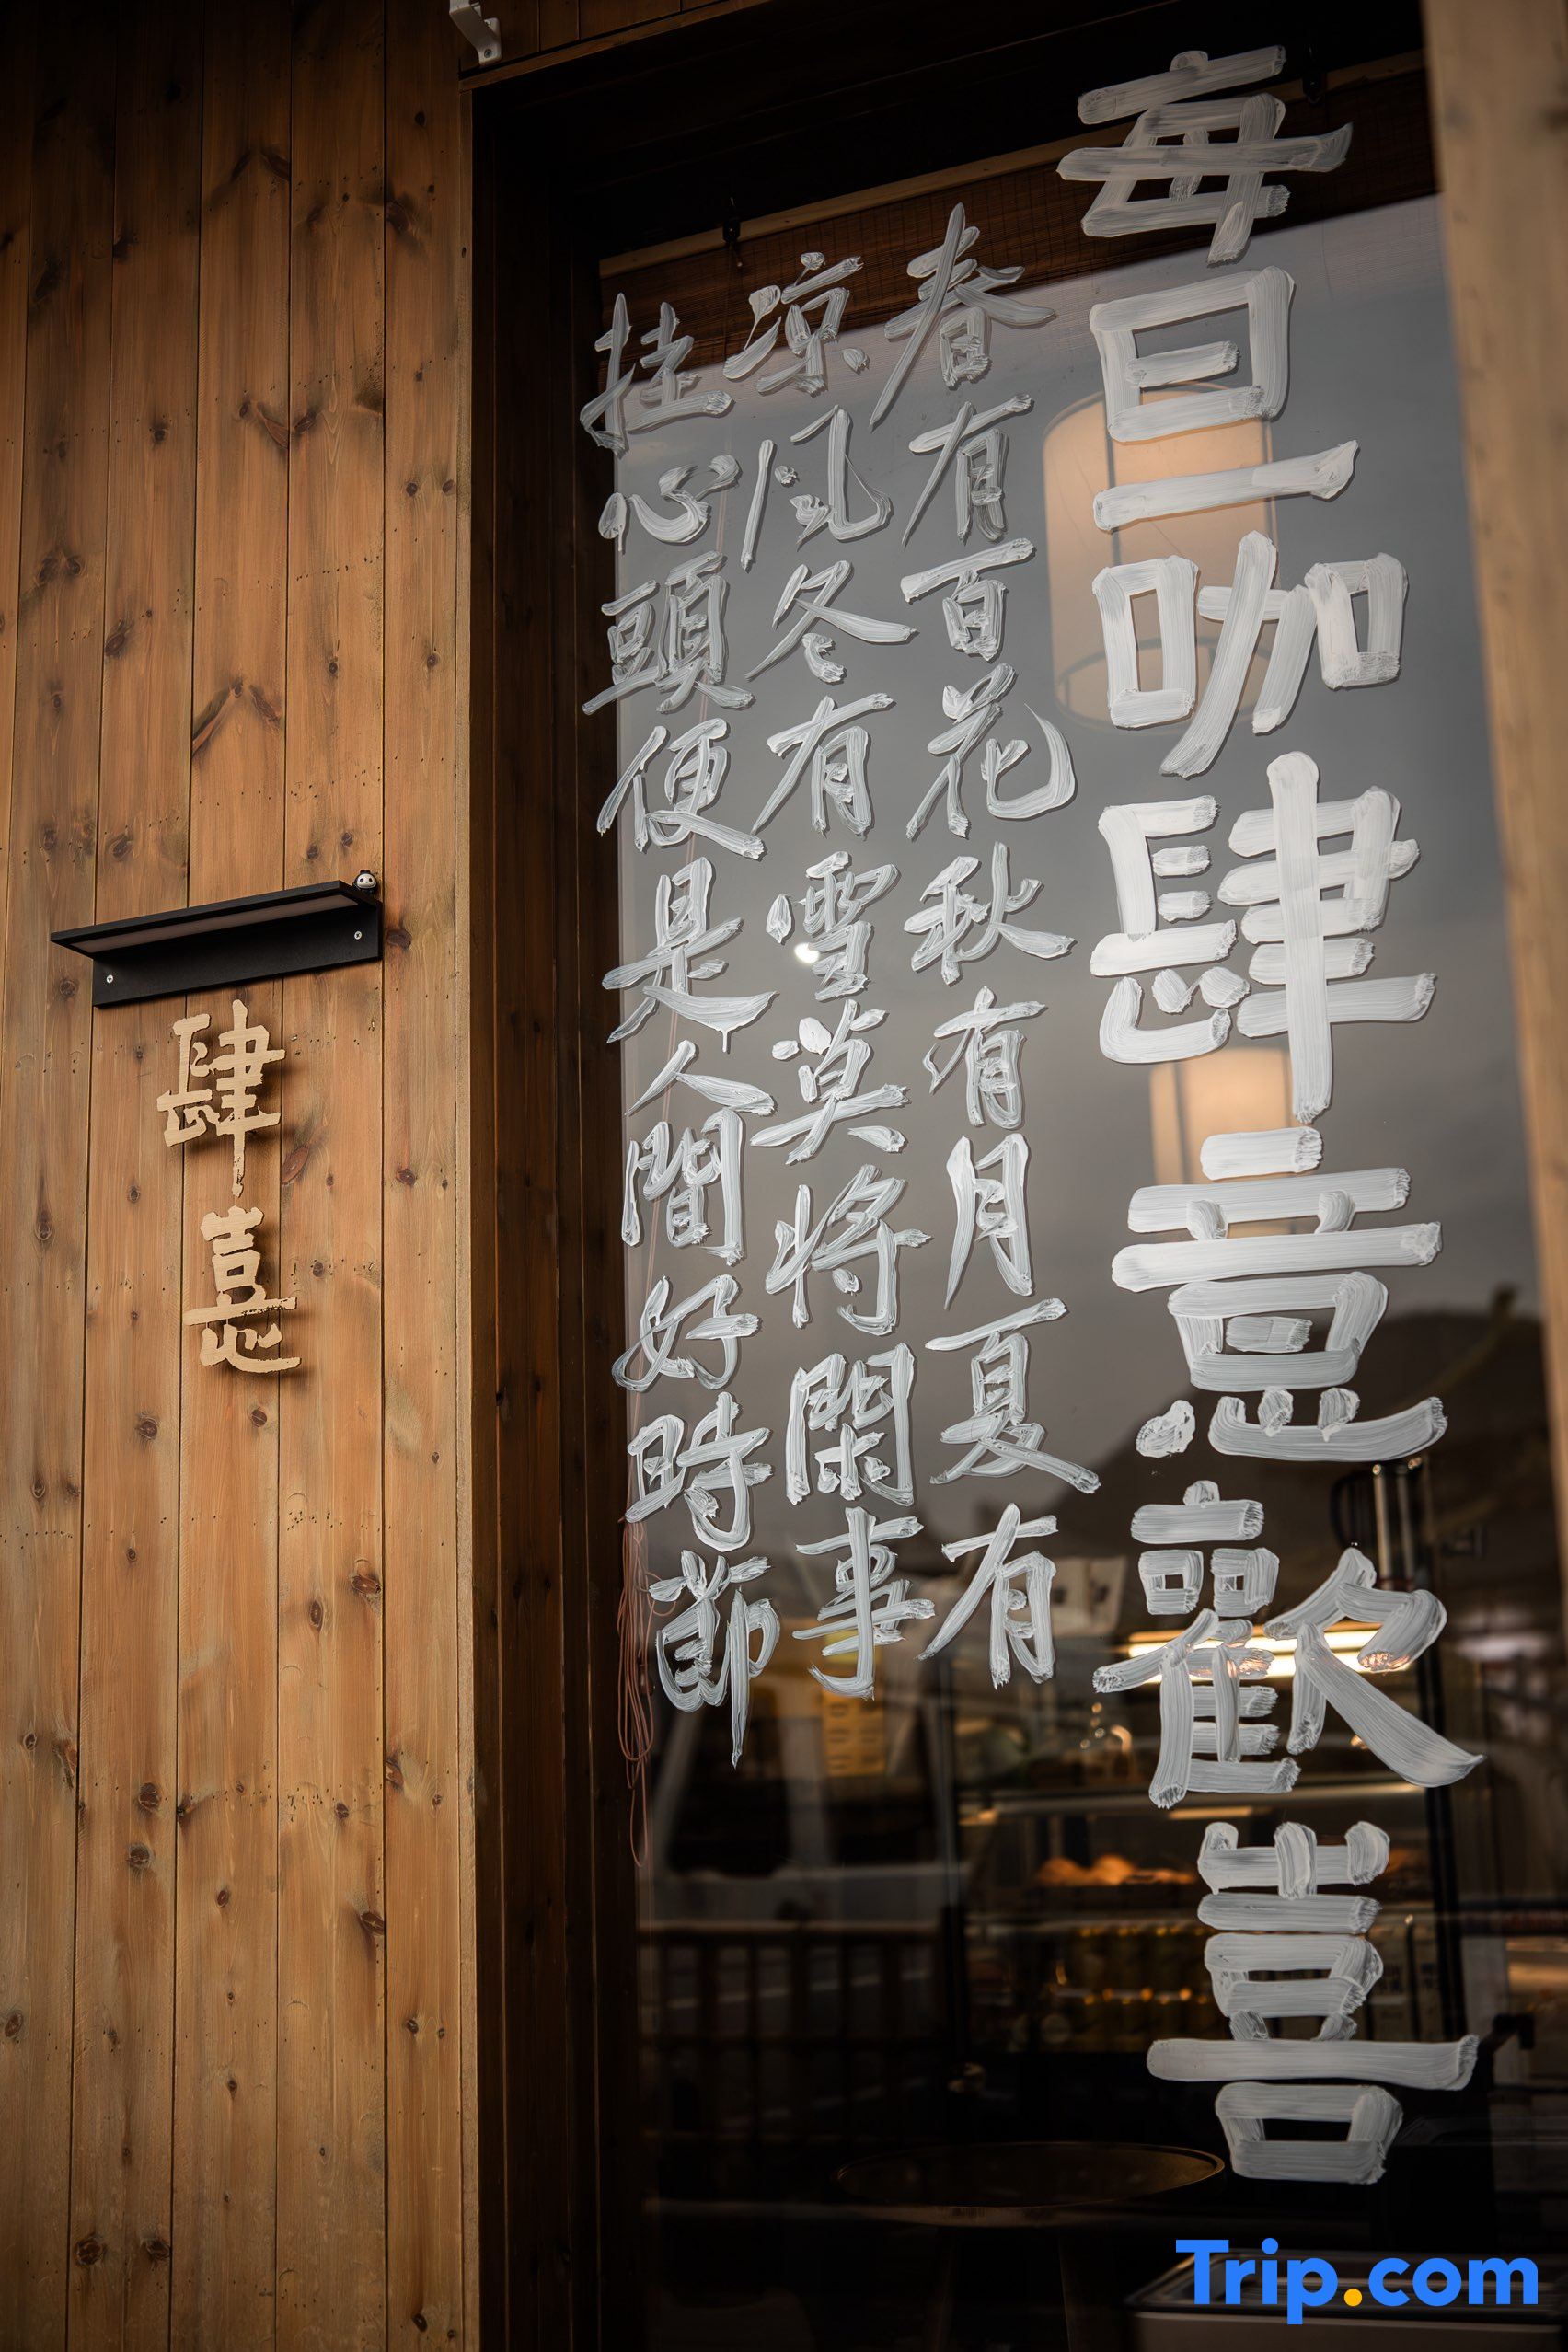 每日一咖肆意歡喜
春有百花秋有月夏有
涼風冬有雪莫將閑事
挂心頭便是人間好時節
肆憙
Trip.com